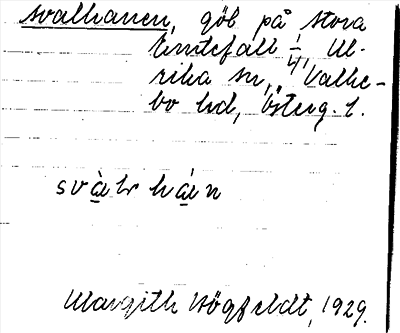 svalhanen, göl på stora
Emtefall 1/4, Ul-
rika sn, Valke-
bo hd, Österg. l.
svàlr hán
Margith Högfeldt, 1929.